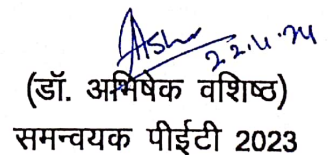 22.11.24
(डॉ. अभिषेक वशिष्ठ)
समन्वयक पीईटी 2023